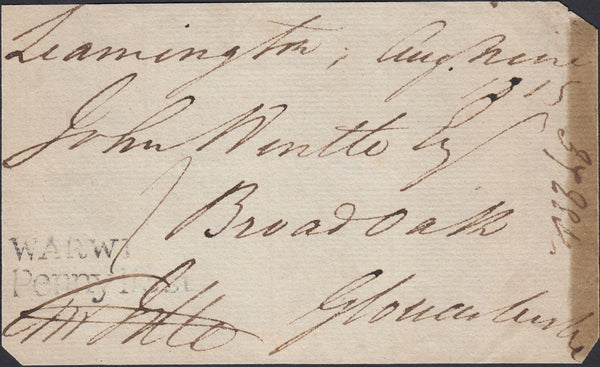 Leamington, Aug. nine
1815
John Wintle Esq
Broad Oak
Gloucestershire
WARWI
Penny Post